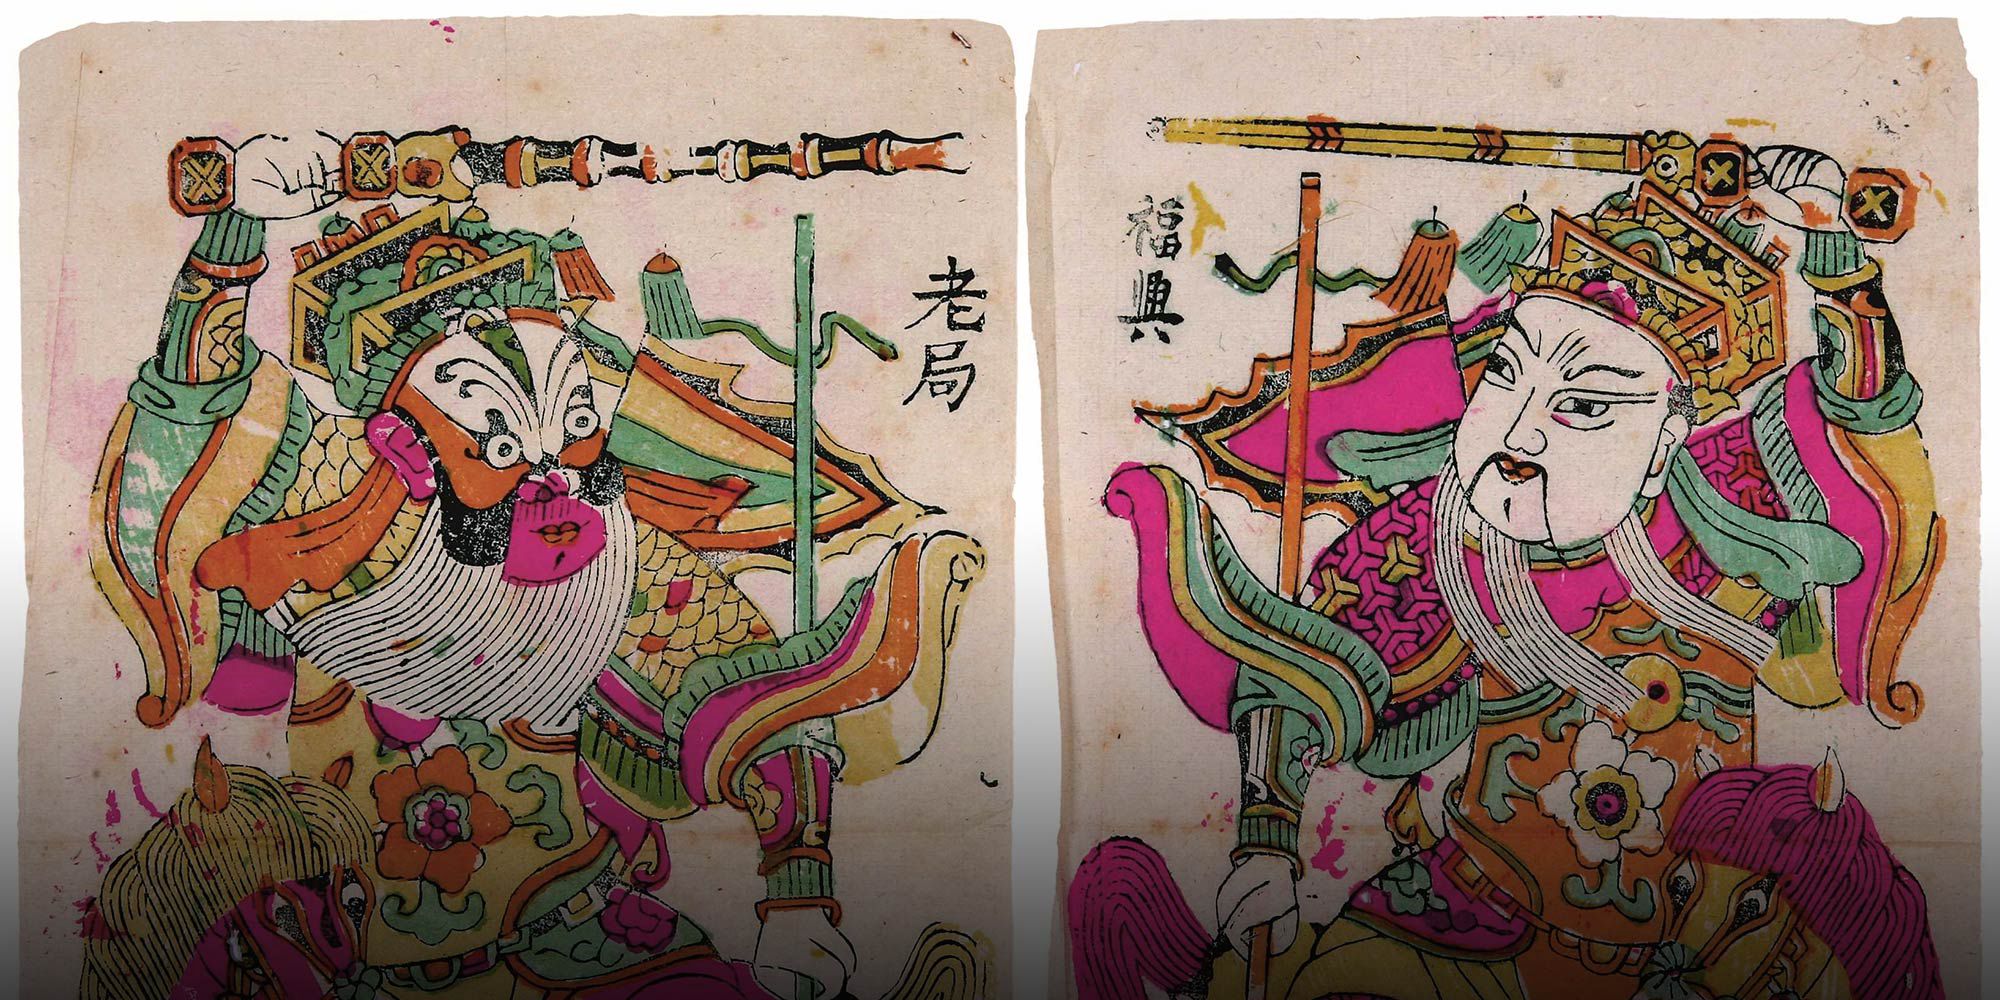 福興
老局